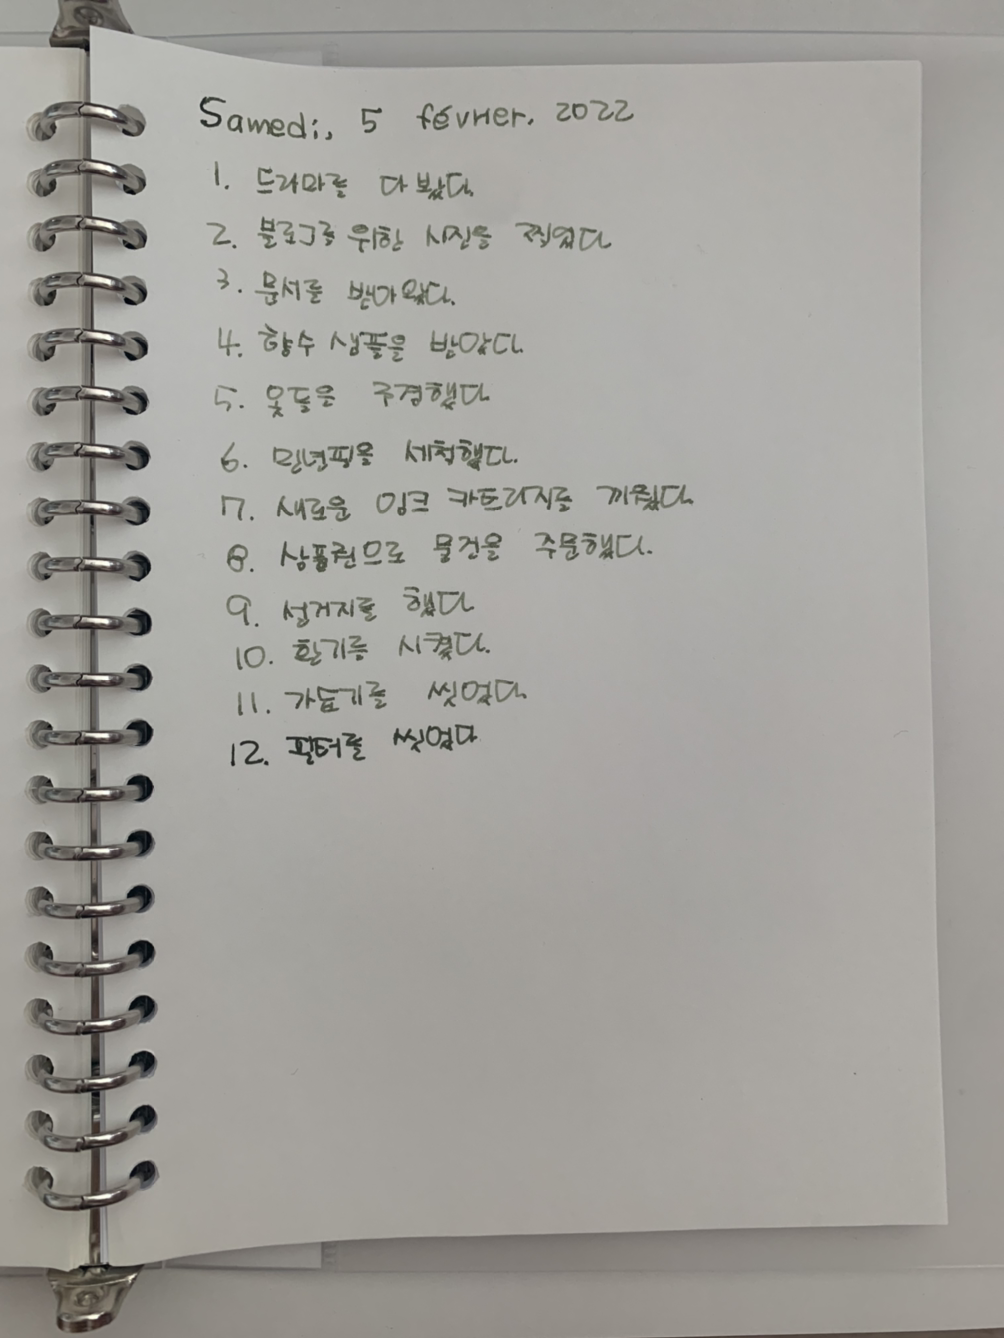 Samedi, 5 février, 2022
1. 드라마를 다 봤다.
2. 블로그를 위한 사진을 찍었다
3. 문서를 받아왔다.
4. 향수 샘플을 받았다.
5. 옷들을 구경했다
6. 만년필을 세척했다.
7. 새로운 잉크 카트리지를 끼웠다.
8. 상품권으로 물건을 주문했다.
9. 설거지를 했다
10. 환기를 시켰다.
11. 가습기를 씻었다.
12. 필터를 씻었다